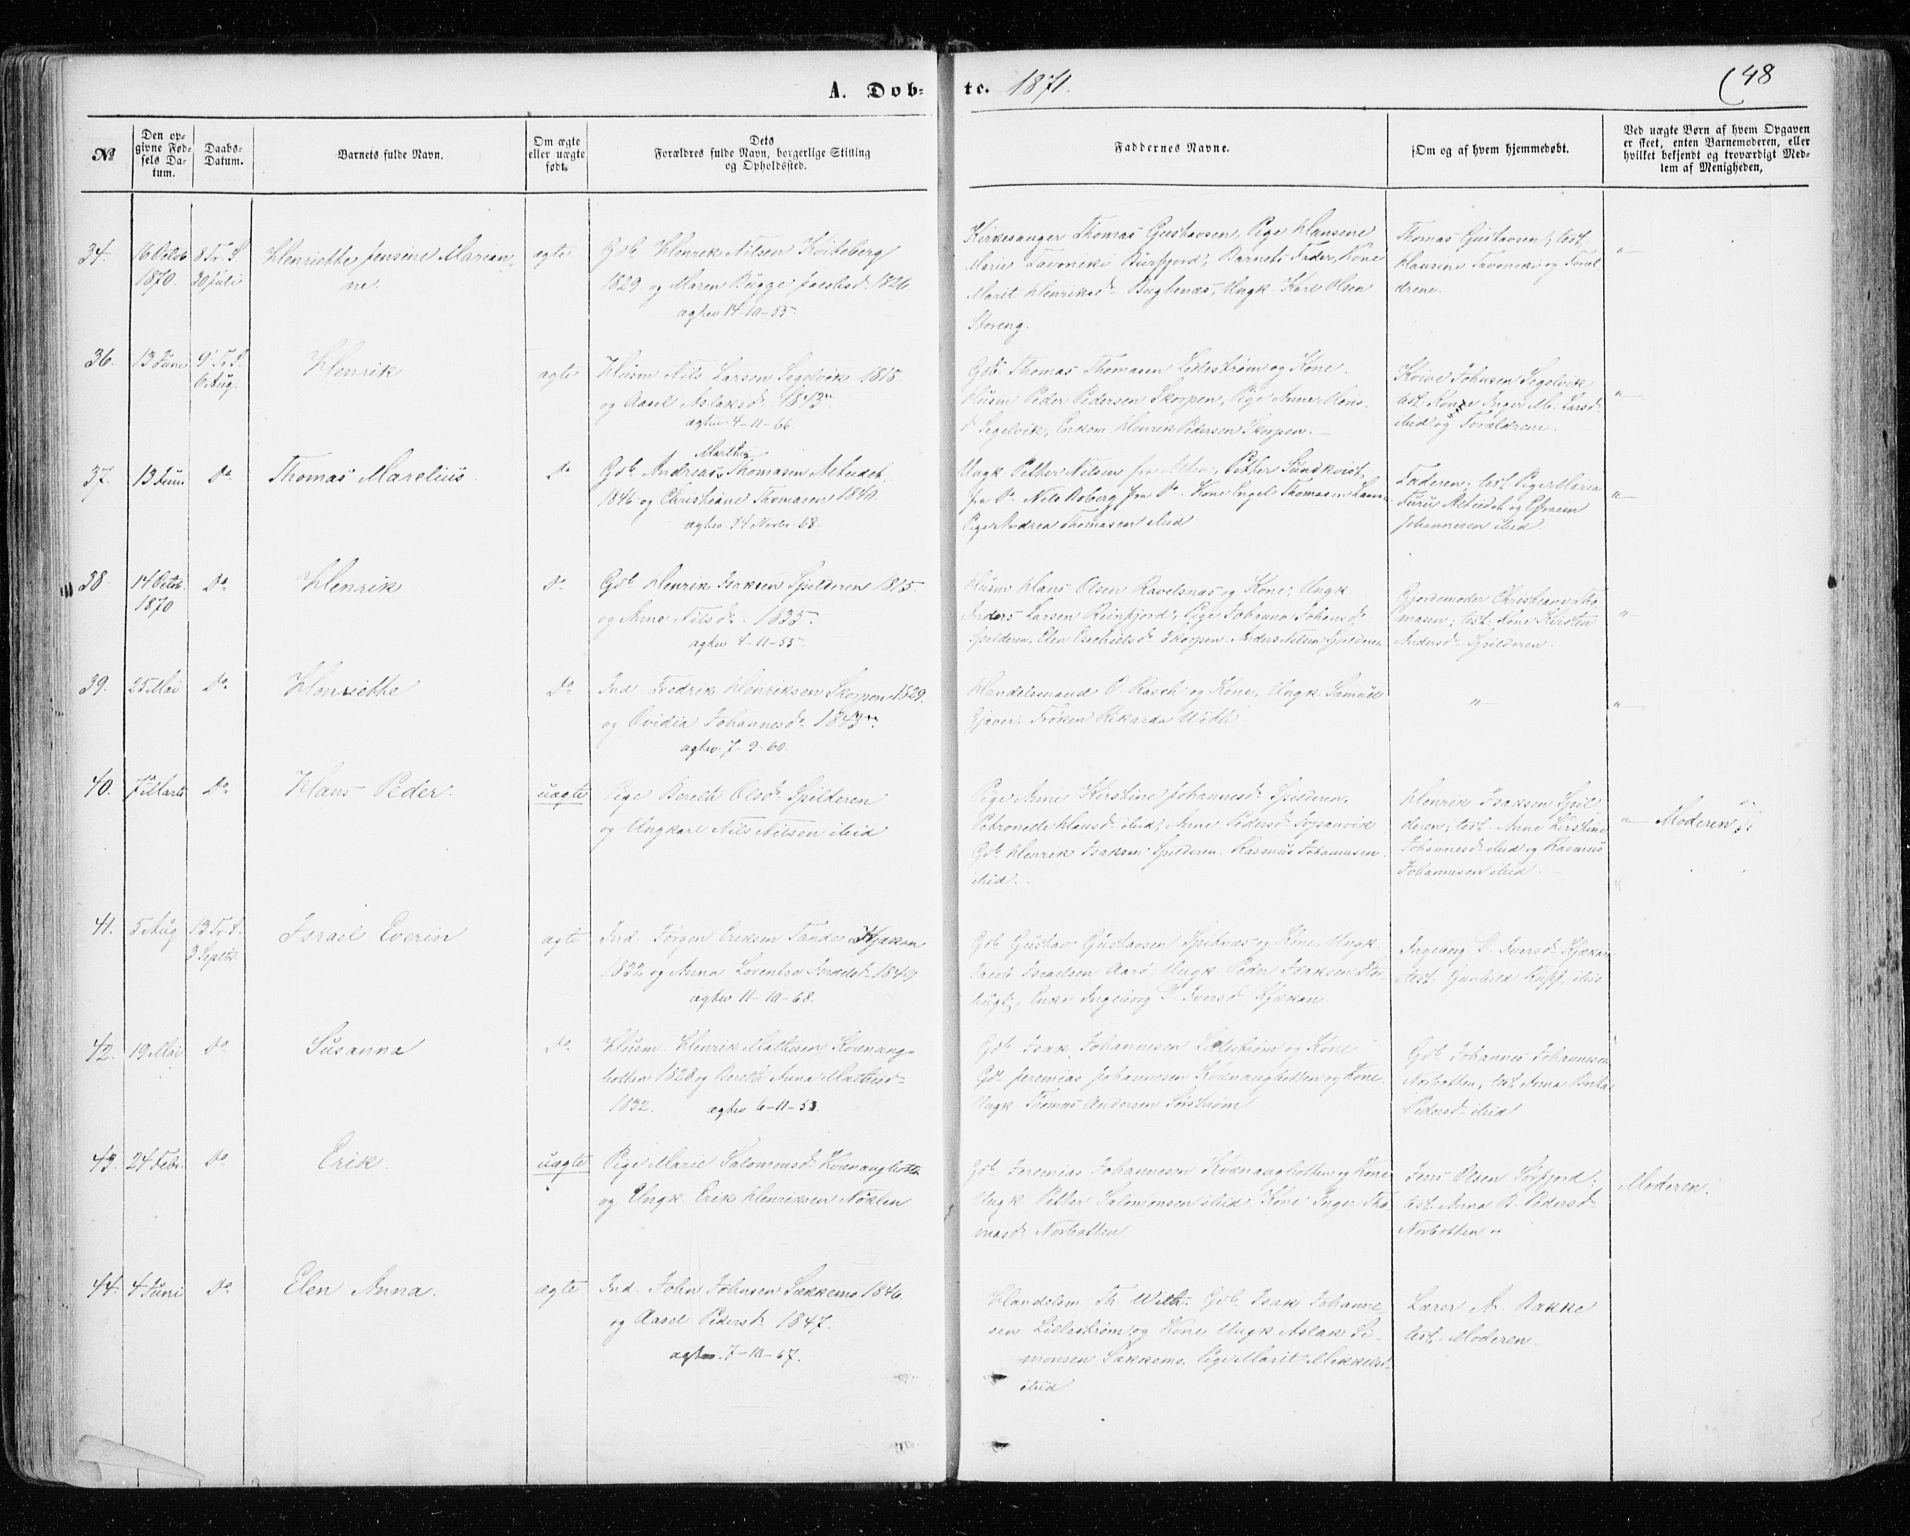 A. Døb-
te. 1871.
48
No
Den op-
givne Fød-
sels Da-
tum.
Daabs-
Datum.
Barnets fulde Navn.
Om ægte
eller uægte
født.
Dets
Forældres fulde Navn, borgerlige Stilling
og Opholdssted.
Faddernes Navne.
Om og af hvem hjemmedøbt.
Ved uægte Børn af hvem Opgaven
er skeet, enten Barnemoderen, eller
hvilket bekjendt og troværdigt Med-
lem af Menigheden,
34.
16 Octob
1870.
8 Tr. S.
30 Juli
Henriette Jensine Marian-
ne.
ægte
Gdb. Henrik Nilsen Kviteberg
1829 og Maren Bugge Jacobsd. 1826
ægtev 14-10-55
Kirkesanger Thomas Gustavsen, Pige Hansine
Marie Burfjord, Barnets Fader, Kone
Marit Henriksd. Ungk. Karl Olsen
Storeng.
Thomas Gustavsen, test.
Hansine og Foræl
drene.
36.
13 Juni
9 Tr. S.
6 Aug.
Henrik
ægte
Husm Nils Larsen Segelvik 1818
og Aasel Aslaksd. 1843
ægtev 4-11-66
Gdb. Thomas Thomasen Lillestrøm og Kone.
Husm Peder Pedersen Skorpen, Pige Anne
Segelvik, Enkem Henrik Pedersen Skorpen.
Johnsen Segelvik
test. Kone Inger M. Larsd.
ibid og Forældrene.
37.
13 Juni
Do
Thomas Marelius.
Do
Gdb Andreas Thomasen
1846 og Christiane Thomasen 1840
ægtev 14 Novbr 68.
Ungk Petter Nilsen fra Petter Sundkvist
fra Do. Nils Boberg fra Do. Kone Engel Thomasen
Pige Andrea Thomasen ibid
Faderen; test. Pige Maria
og Efraim
Johannesen ibid
38
14 Octob.
1870
Do
Henrik
Do
Gdb Henrik Isaksen Spilderen 1815
og Anne Nilsd. 1835.
ægtev 4-11-55
Husm Hans Olsen Ravelsnæs og Kone, Ungk
Anders Larsen Reinfjord, Pige Johanna Johansd.
Spilderen, Elen Skorpen. Anders Nilsen Spilderen
Gjordemoder Christiane Tho
masen; test. Kone Kirsten
Andersd. Spilderen.
39.
25 Mai
Do
Henriette
Do
Ind. Fredrik Henriksen Skorpen 1829.
og Ovidia Johannesd. 1843
ægtev 7-9-60.
Handelsmand O. Rasch og Kone, Ungk. Samuel
Gjæver. Frøken Rikarda With
40.
7 Marts
Do
Hans Peder.
uægte
Pige Bereth Olsd. Spilderen
og Ungkarl Nils Nilsen ibid
Pige Anne Kirstine Johannesd. Spilderen,
Petronelle Hansd. ibid, Anne Pedersd.
Gdb Henrik Isaksen Spilderen. Rasmus Johannesen
ibid.
Henrik Isaksen Spil
deren; test. Anne Kirstine
Johannesd. ibid og Rasmus
Johannesen ibid.
Moderen
41.
5 Aug
13 Tr. S.
3 Septbr.
Israel Everin
ægte
Ind. Jørgen Eriksen Tande, Kjækan
1832 og Anna Lorentse Israelsd. 1849.
ægtev 11-10-68.
Gdb Gustav Gustavsen Spildnæs og Kone, Ungk.
Jacob Israelsen Aarø, Ungk. Peder Isaksen
Enke Ingeborg D. Iversd. Kjækan.
Ingeborg D. Iversd. Kjækan
test. Gunhild ibid
42.
19 Mai
Do
Susanna
Do
Husm. Henrik Mathisen Kvænang-
botten 1828 og Bereth Anna Mathisd.
1832.
ægtev 6-11-53
Gdb Isak Johannesen Lillestrøm og Kone
Gdb Jeremias Johannesen Kvænangbotten og Kone
Ungk. Thomas Andersen Sørstrøm
Gdb Johannes Johannesen
Norbotten; test. Anna
Pedersd. ibid
43.
24 Febr.
Do
Erik.
uægte
Pige Marie Salomonsd. Kvænangbotten
og Ungk. Erik Henriksen Nøklen
Gdb Jeremias Johannesen Kvænangbotten og Kone
Ungk Petter Salomonsen ibid Kone Inger Tho
masd. Norbotten
Jens Olsen Sørfjord;
test. Anna B. Pedersd.
Norbotten
Moderen.
44.
4 Juni
Do
Elen Anna.
ægte
Ind. John Johnsen Sakkemo 1846
og Aasel Pedersd. 1847.
ægtev. 7-10-67.
Handelsm Th. With. Gdb. Isak Johanne-
sen Lillestrøm og Kone Ungk Aslak Si-
monsen Sakkemo. Pige Marit Mikkelsd.
ibid
Lærer A. Bakke
test. Moderen.